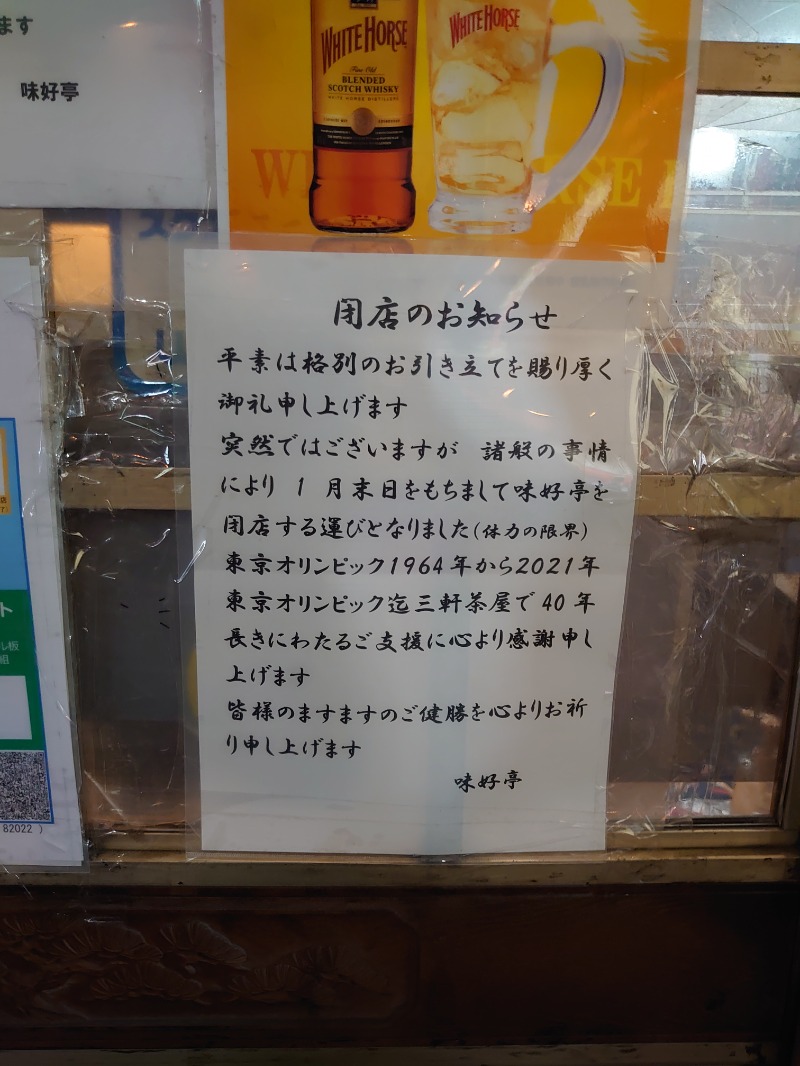 ます
味好亭
WHITE HORSE
Fine Old
BLENDED
SCOTCH WHISKY
WHITE HORSE DISTILLERS
WHITE HORSE
閉店のお知らせ
平素は格別のお引き立てを賜り厚く
御礼申し上げます
突然ではございますが 諸般の事情
により 1 月末日をもちまして味好亭を
閉店する運びとなりました(体力の限界)
東京オリンピック1964年から2021年
東京オリンピック迄三軒茶屋で 40 年
長きにわたるご支援に心より感謝申し
上げます
皆様のますますのご健勝を心よりお祈
り申し上げます
味好亭
ト
ル板
組
82022 )